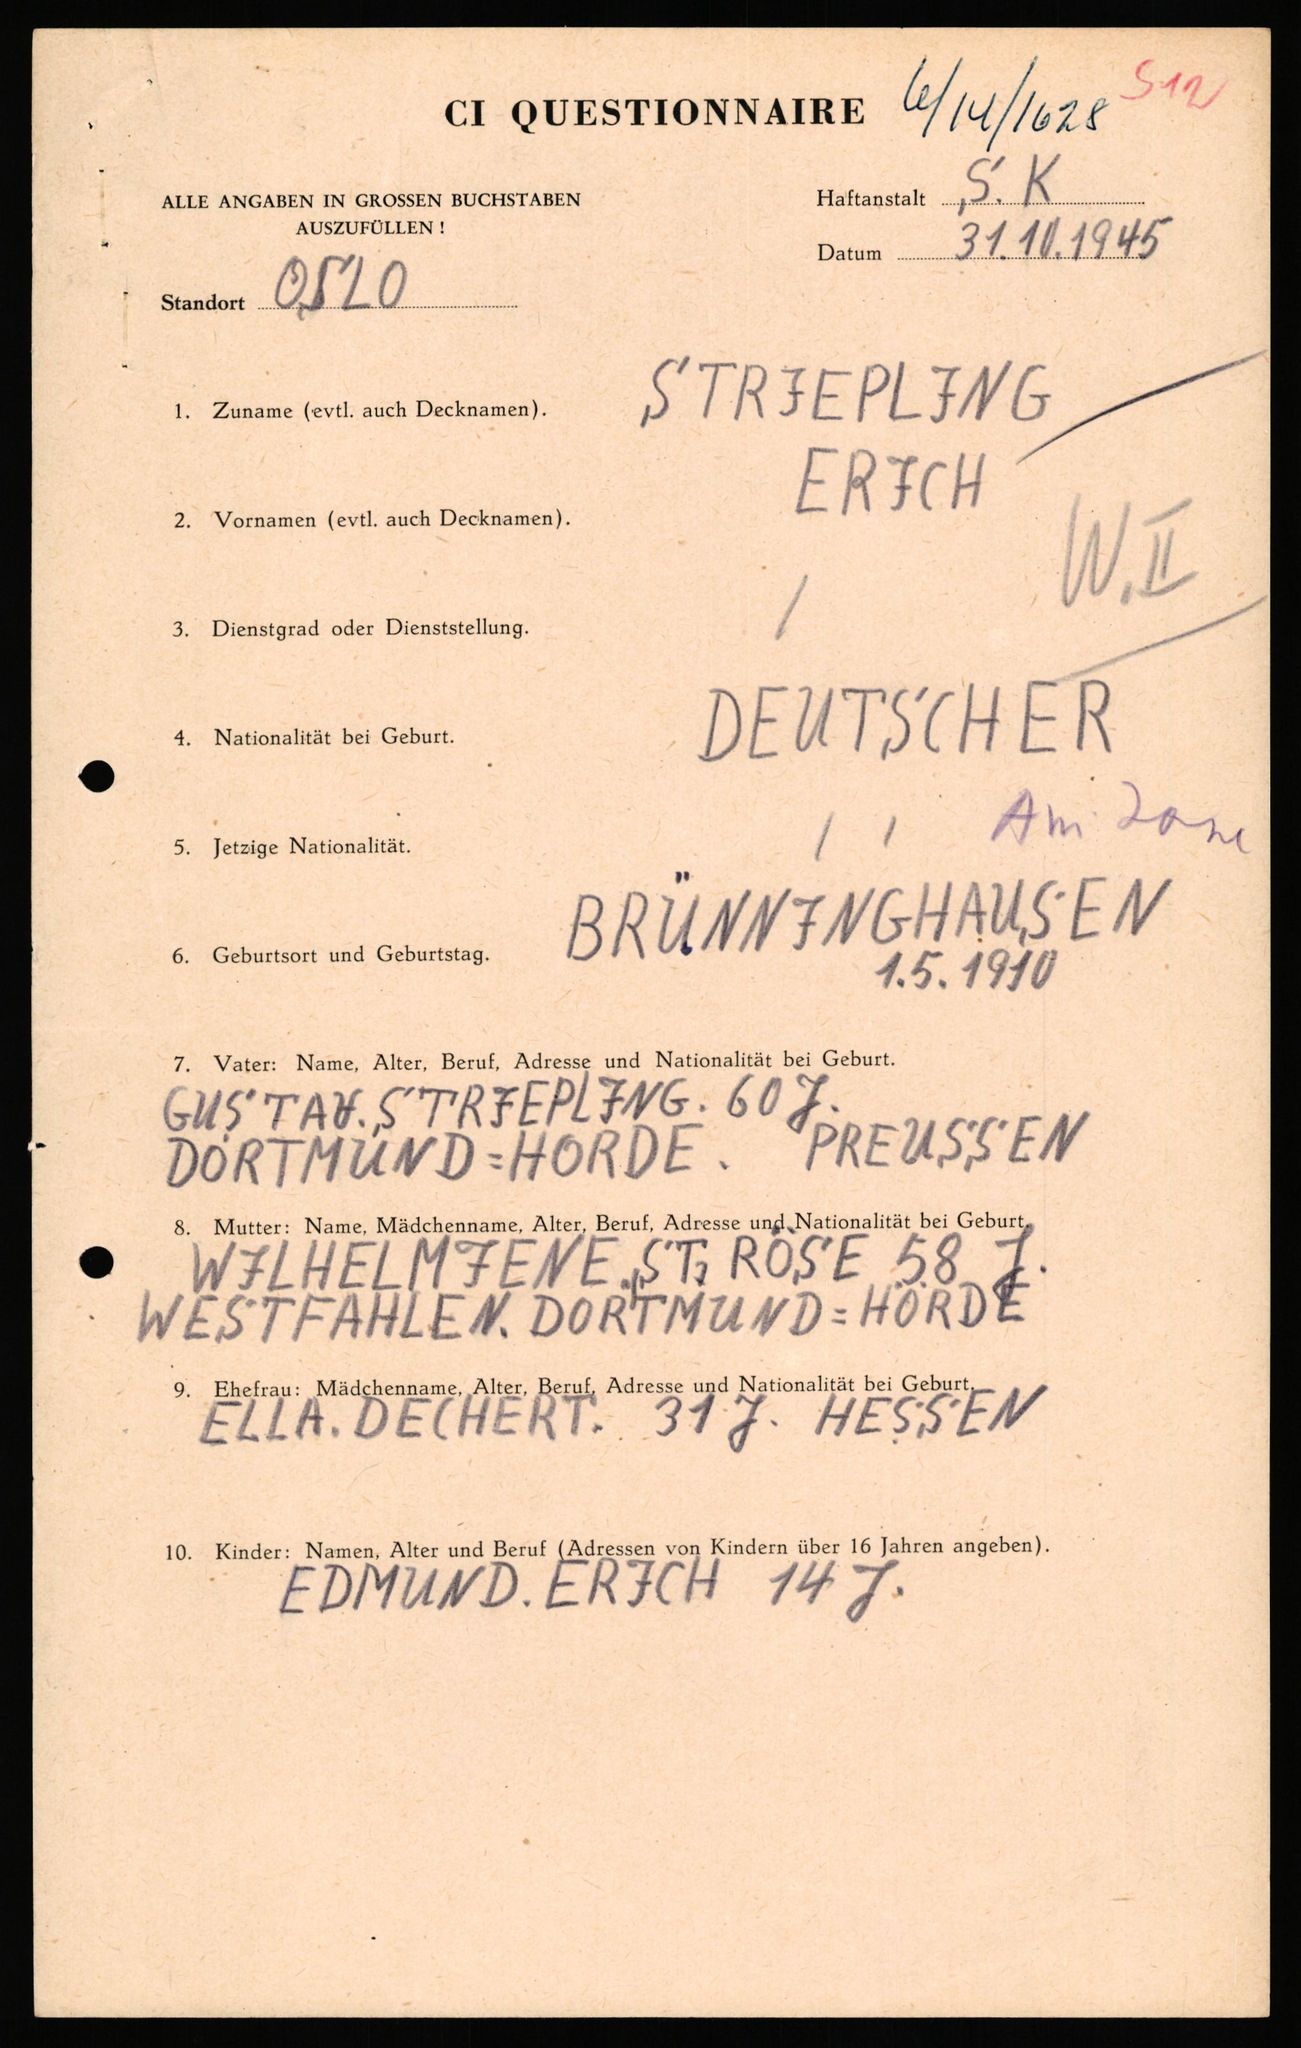 CI QUESTIONNAIRE 6/14/1628 S12
ALLE ANGABEN IN GROSSEN BUCHSTABEN
AUSZUFÜLLEN!
Haftanstalt S.K
Datum 31.10.1945
Standort OSLO
1. Zuname (evtl. auch Decknamen). STRIEPLING
ERICH
2. Vornamen (evtl. auch Decknamen).
W.II
3. Dienstgrad oder Dienststellung. /
4. Nationalität bei Geburt. DEUTSCHER
5. Jetzige Nationalität. / / Am. Zone
6. Geburtsort und Geburtstag. BRÜNNINGHAUSEN
1.5.1910
7. Vater: Name, Alter, Beruf, Adresse und Nationalität bei Geburt.
GUSTAV. STRIEPLING. 60 J.
DORTMUND=HORDE. PREUSSEN
8. Mutter: Name, Mädchenname, Alter, Beruf, Adresse und Nationalität bei Geburt.
WILHELMIENE. ST, RÖSE 58 J.
WESTFAHLEN. DORTMUND=HÖRDE
9. Ehefrau: Mädchenname, Alter, Beruf, Adresse und Nationalität bei Geburt.
ELLA. DECHERT. 31 J. HESSEN
10. Kinder: Namen, Alter und Beruf (Adressen von Kindern über 16 Jahren angeben).
EDMUND. ERICH 14 J.